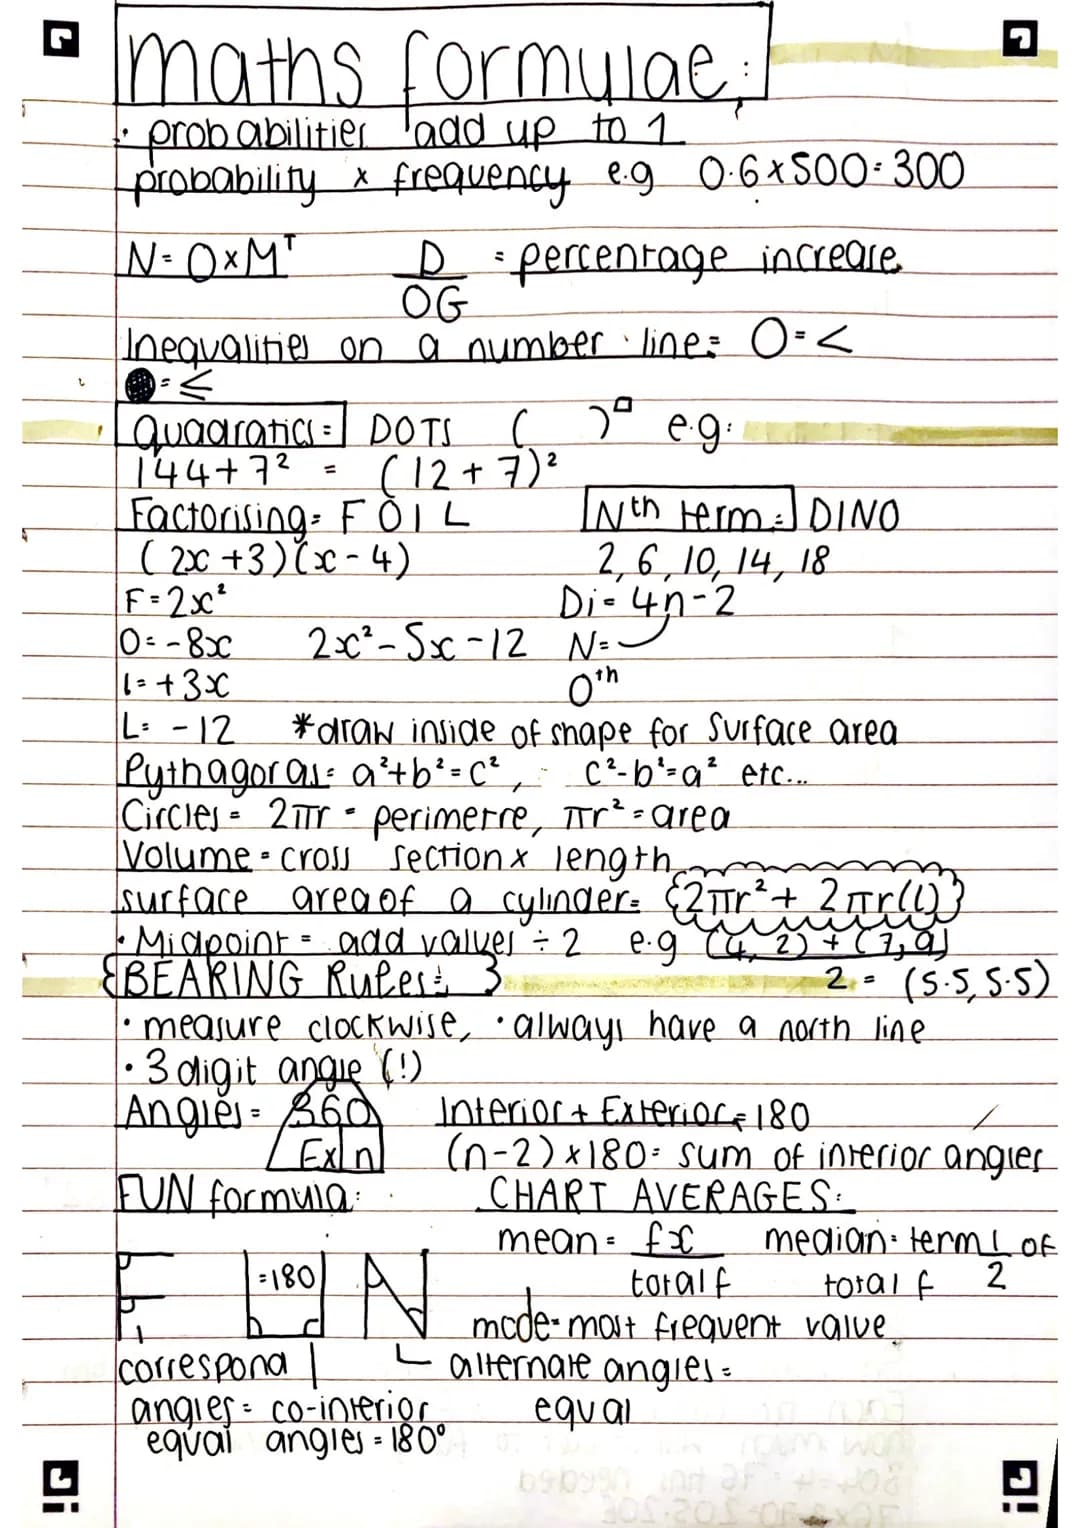 maths formulae:
· probabilities add up to 1
probability x frequency e.g 0.6x500=300
N=OxMᵀ D/OG = percentage increase
Inequalities on a number line: O=<
●=≤
Quadratics= DOTS ( )□ e.g:
144+7² = (12+7)²
Factorising= FOIL Nth term= DINO
(2x+3)(x-4) 2, 6, 10, 14, 18
F=2x² Di= 4n-2
O=-8x 2x²-5x-12 N=
I=+3x 0th
L= -12 *draw inside of shape for surface area
Pythagoras= a²+b²=c², c²-b²=a² etc...
Circles= 2πr = perimetre, πr²=area
Volume= cross section x length
surface area of a cylinder= {2πr²+ 2πr(l)}
· Midpoint = add values ÷2 e.g (4,2)+(7,9)
{BEARING Rules: } 2 = (5.5, 5.5)
· measure clockwise, · always have a north line
· 3 digit angle (!)
Angles= 360 Interior + Exterior=180
Ex|n (n-2)x180= sum of interior angles
FUN formula: CHART AVERAGES:
mean= fx median= term 1 of
F =180 N total f total f 2
mode= most frequent value
correspond | alternate angles=
angles= co-interior equal
equal angles=180°